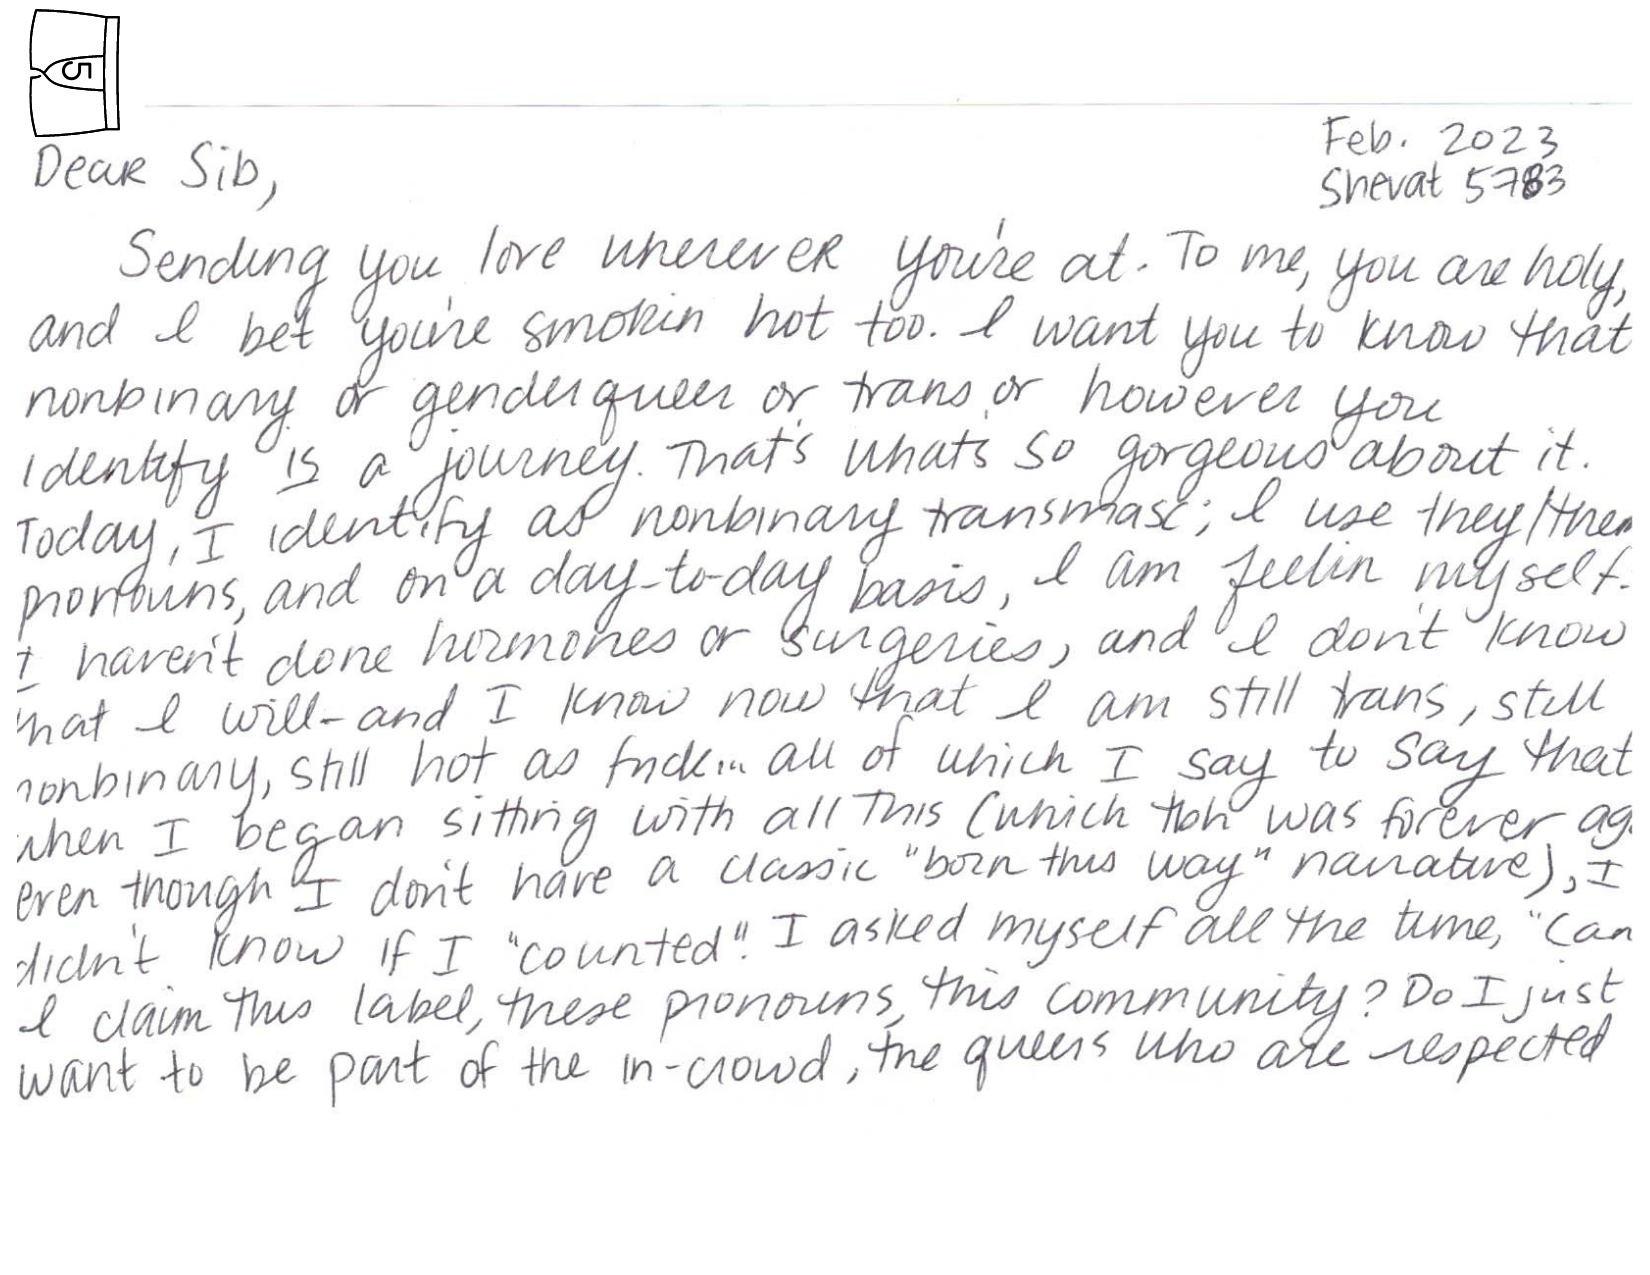 5
Feb. 2023
Shevat 5783
Dear Sib,
Sending you love wherever you're at. To me, you are holy,
and I bet you're smokin hot too. I want you to know that
nonbinary or genderqueer or trans or however you
identify is a journey. That's what's so gorgeous about it.
Today, I identify as nonbinary transmasc; I use they/them
pronouns, and on a day-to-day basis, I am feelin myself.
I haven't done hormones or surgeries, and I don't know
that I will- and I know now that I am still trans, still
nonbinary, still hot as fuck... all of which I say to say that
when I began sitting with all this (which tbh was forever ag
even though I don't have a classic "born this way" narrative), I
didn't know if I "counted". I asked myself all the time, "Can
I claim this label, these pronouns, this community? Do I just
want to be part of the in-crowd, the queers who are respected